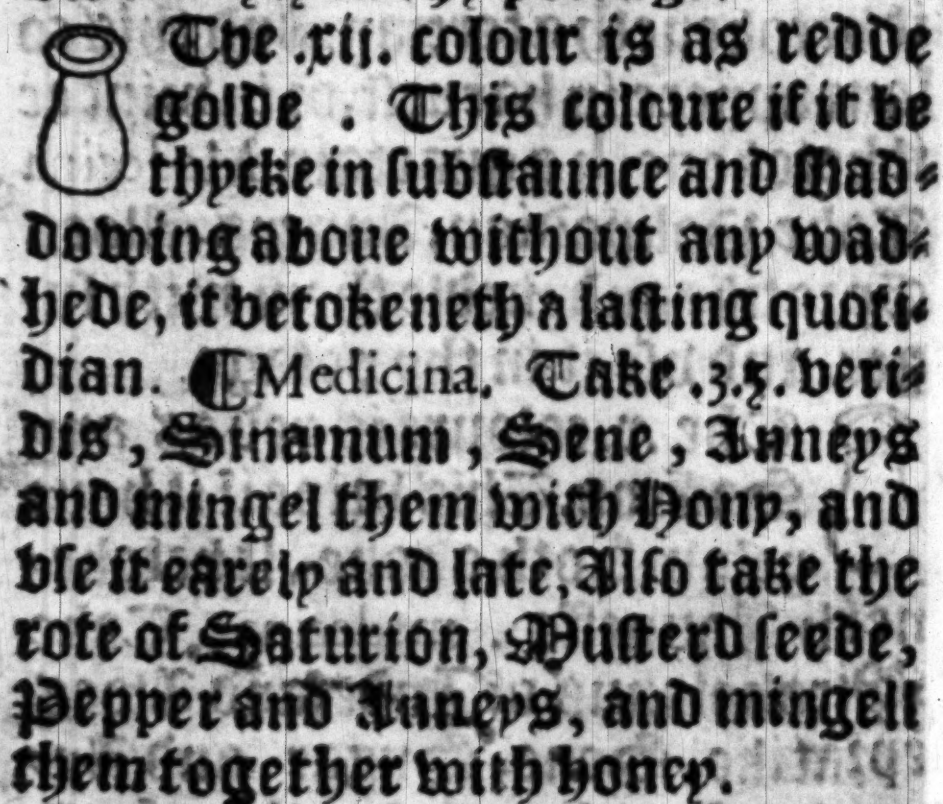 The .xij. colour is as redde
golde . This coloure if it be
thycke in ſubſtaunce and ſhad⸗
dowing aboue without any wad⸗
hede, it betokeneth a laſting quoti⸗
dian. ¶ Medicina. Take .3.5. veri⸗
dis, Sinamum, Sene, Anneys
and mingel them with Hony, and
vſe it earely and late, Alſo take the
rote of Saturion, Muſterd ſeede,
Pepper and Anneys, and mingell
them together with honey.